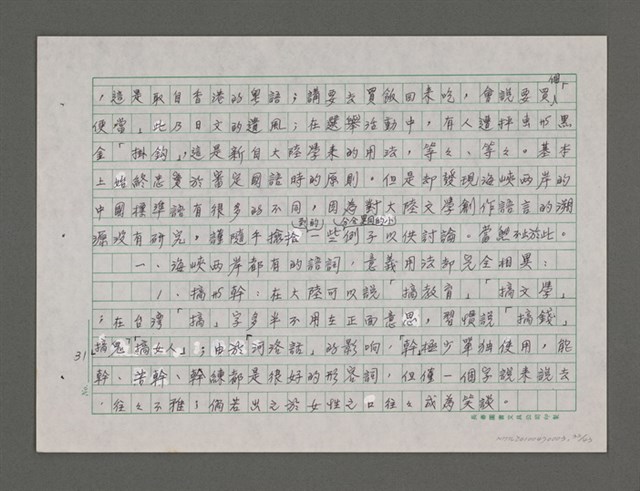 個「
，這是取自香港的粵語；講要去買飯回來吃，會說要買
便當」此乃日文的遺風；在選舉活動中，有人遭抖出與黑
金「掛鈎」，這是新自大陸學來的用法，等々、等々。基本
上始終忠實於審定國語時的原則。但是却發現海峽兩岸的
中國標準語有很多的不同，因為對大陸文學創作語言的溯
(對的)
源沒有研究，謹隨手搶拾一些例子以供討論。當然不止於此。
一、海峽兩岸都有的語詞，意義用法却完全相異：
1、搞與幹：在大陸可以說「搞教育」「搞文學」
；在台灣「搞」字多半不用在正面意思，習慣說「搞錢」
「搞鬼」「搞女人」；由於「河洛話」的影响，「幹」極少單獨使用，能
31
幹、苦幹、幹練都是很好的形容詞，但僅一個字說來說去
往々不雅；倘若出之於女性之口往々成為笑談。